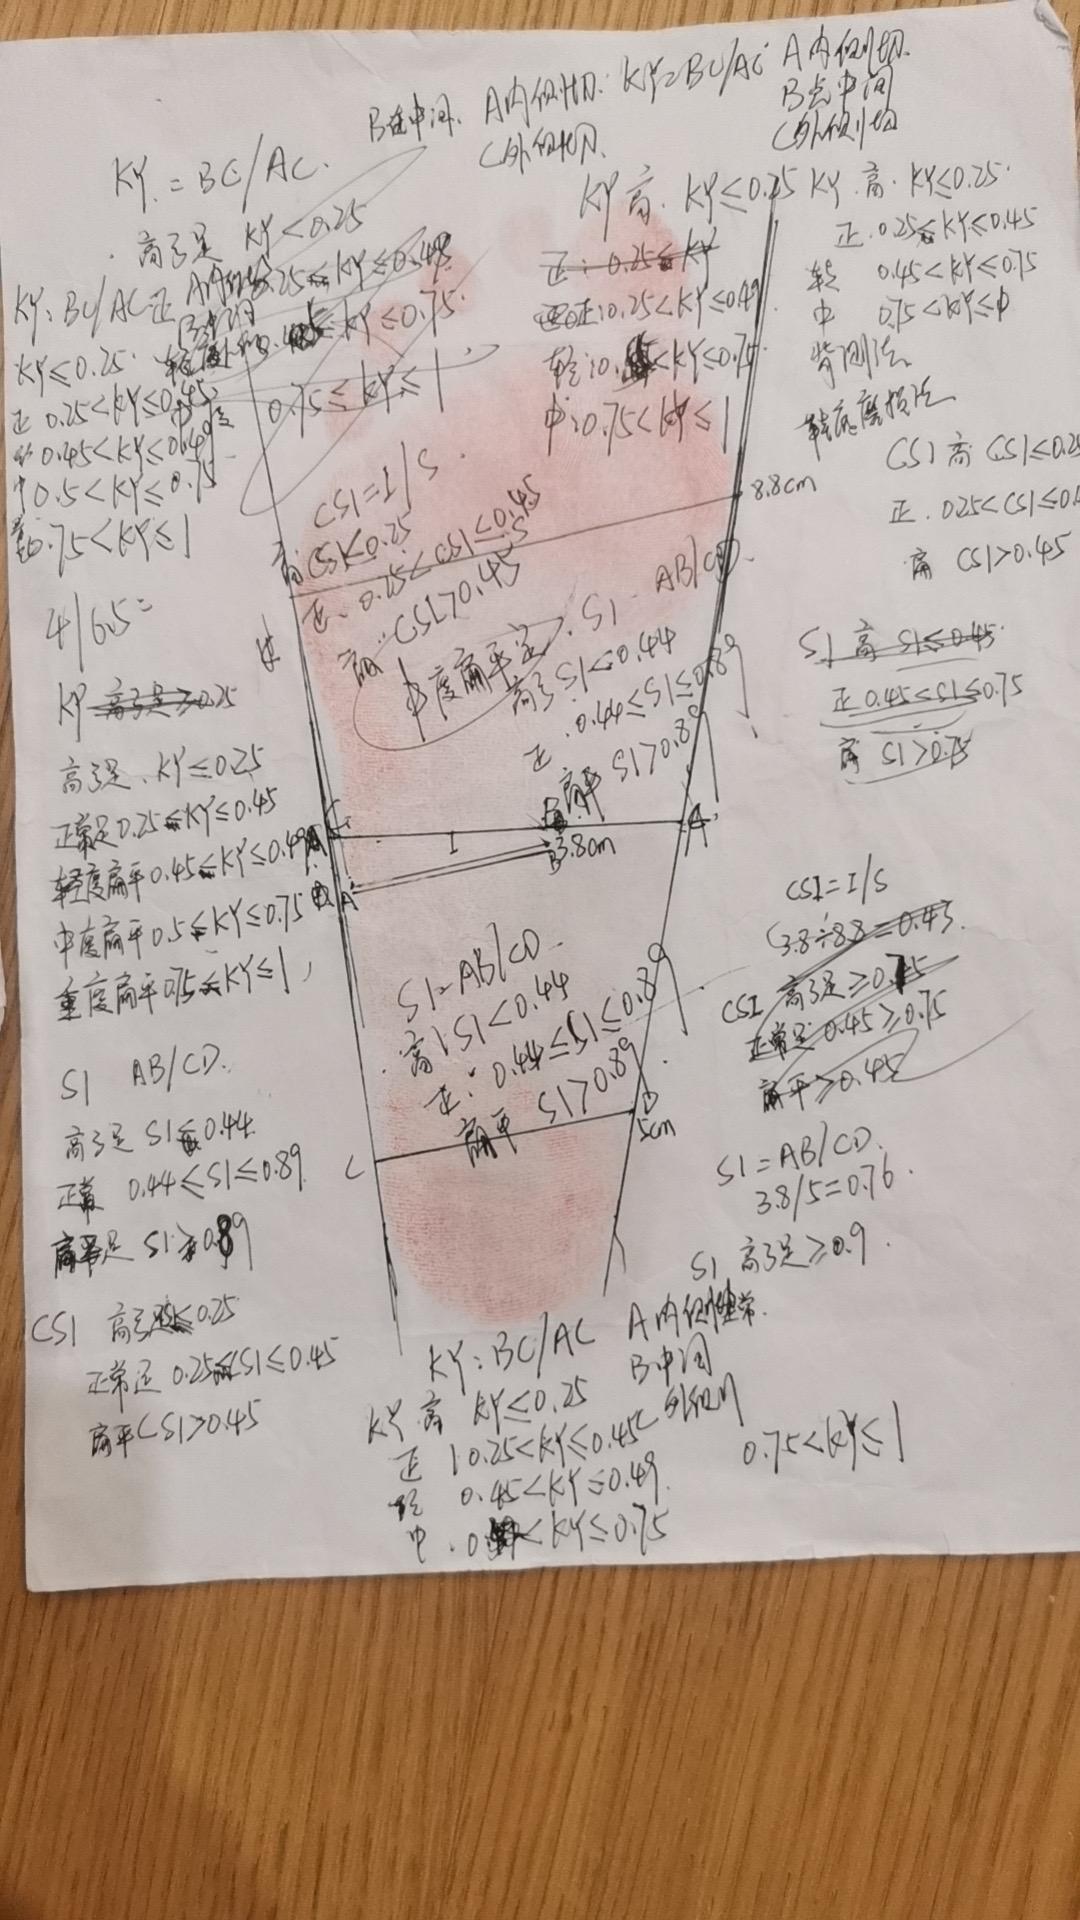 B在中间. A内侧切. KY=BC/AC A内侧切.
C外侧切. B点中间
C外侧切
KY = BC/AC.
高弓足 KY<0.25
A内侧
B中间
0.25≤KY≤0.45
≤KY≤0.75.
0.75≤KY≤1
KY: BC/AC
KY≤0.25
正 0.25<KY≤0.45
0.45<KY≤0.49
中 0.5<KY≤0.75
0.75<KY≤1
KY高. KY≤0.25
正: 0.25≤KY
正: 0.25<KY≤0.49
轻: 0. <KY≤0.75
中: 0.75<KY≤1
KY.高. KY≤0.25.
正.0.25≤KY≤0.45
轻 0.45<KY≤0.75
中 0.75<KY≤
鞋底磨损法
CSI 高 CSI≤0.25
正. 0.25<CSI≤0.4
扁 CSI>0.45
CSI=I/S.
高:CSI<0.25
正. 0.25<CSI≤0.45
扁:CSI>0.45
S
8.8cm
中度扁平足.
SI AB/CD.
高弓 SI<0.44
正.0.44≤SI≤0.89
扁平 SI>0.89
4/6.5=
KY 高弓足≥0.25
高弓足. KY≤0.25
正常足 0.25≤KY≤0.45
轻度扁平 0.45≤KY≤0.49
中度扁平 0.5≤KY≤0.75
重度扁平 0.75≤KY≤1
SI 高 SI≤0.45
正 0.45<SI≤0.75
扁 SI>0.75
I
A
A'
B
3.8cm
CSI=I/S
3.8÷8.8=0.43.
CSI 高弓足≥0.75
正常足 0.45≥0.75
扁平≥0.45
SI=AB/CD
高:SI<0.44
正: 0.44≤SI≤0.89
扁平 SI>0.89
C
D
5cm
SI AB/CD.
高弓足 SI≤0.44
正常 0.44≤SI≤0.89
扁平足 SI>0.89
SI=AB/CD.
3.8/5=0.76.
SI 高弓足≥0.9.
CSI 高弓足≤0.25
正常足 0.25≤CSI≤0.45
扁平CSI>0.45
KY: BC/AC A内侧
B中间
外侧
KY高 KY≤0.25
正 0.25<KY≤0.45
轻 0.45<KY≤0.49
中.0. <KY≤0.75
0.75<KY≤1